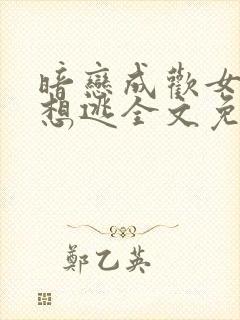 暗戀成歡女
想逃全文免
鄭乙英